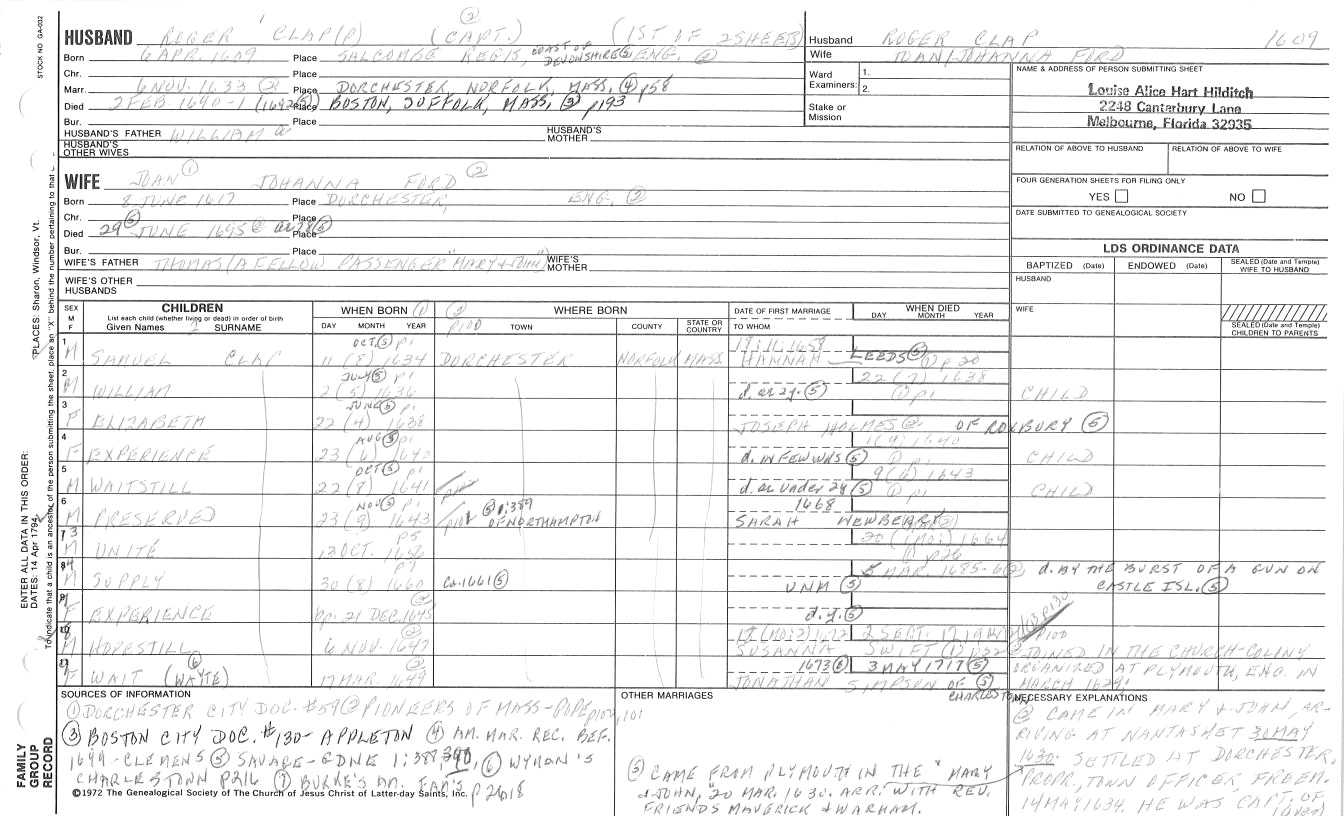 STOCK NO. GA-032
HUSBAND ROGER CLAP(P) (CAPT.) ② (1ST OF 2 SHEETS)
Born 6 APR. 1609 Place SALCOMBE REGIS, COAST OF DEVONSHIRE⑤ ENG. ②
Chr. Place
Marr. 6 NOV. 1633 ② Place DORCHESTER, NORFOLK, MASS, ④ p58
Died 2 FEB. 1690-1 (1692⑤) Place BOSTON, SUFFOLK, MASS, ③ p193
Bur. Place
HUSBAND'S FATHER WILLIAM HUSBAND'S MOTHER
HUSBAND'S OTHER WIVES
WIFE JOAN① JOHANNA FORD ②
Born 8 JUNE 1617 Place DORCHESTER, ENG. ②
Chr. Place
Died 29⑤ JUNE 1695 Place
Bur. Place
WIFE'S FATHER THOMAS (A FELLOW PASSENGER "MARY & JOHN") WIFE'S MOTHER
WIFE'S OTHER HUSBANDS
Husband ROGER CLAP 1609
Wife JOAN/JOHANNA FORD
Ward Examiners: 1.
2.
Stake or Mission
NAME & ADDRESS OF PERSON SUBMITTING SHEET
Louise Alice Hart Hilditch
2248 Canterbury Lane
Melbourne, Florida 32935
RELATION OF ABOVE TO HUSBAND RELATION OF ABOVE TO WIFE
FOUR GENERATION SHEETS FOR FILING ONLY
YES NO
DATE SUBMITTED TO GENEALOGICAL SOCIETY
LDS ORDINANCE DATA
BAPTIZED (Date) ENDOWED (Date) SEALED (Date and Temple) WIFE TO HUSBAND
HUSBAND
WIFE
SEALED (Date and Temple) CHILDREN TO PARENTS
SEX M F CHILDREN
List each child (whether living or dead) in order of birth
Given Names SURNAME
WHEN BORN ① DAY MONTH YEAR
② p100 WHERE BORN TOWN COUNTY STATE OR COUNTRY
DATE OF FIRST MARRIAGE TO WHOM
WHEN DIED DAY MONTH YEAR
1 M SAMUEL CLAP OCT⑤ p1 11 (8) 1634 DORCHESTER NORFOLK MASS. HANNAH LEEDS⑤ ① p 20
2 M WILLIAM JULY⑤ p1 2 (5) 1636 d. ae 2y. ⑤ 22 (7) 1638 ① p1 CHILD
3 F ELIZABETH JUNE⑤ p1 22 (4) 1638 JOSEPH HOLMES② OF ROXBURY ⑤
4 F EXPERIENCE AUG⑤ p1 23 (6) 1640 d. IN FEW WKS ⑤ ① p1 CHILD
5 M WAITSTILL OCT⑤ p1 22 (8) 1641 d. ae under 2y ⑤ 1643 ① p1 CHILD
6 M PRESERVED NOV⑤ p1 23 (9) 1643 ⑤ 1:389 OF NORTHAMPTON 1668 SARAH NEWBERRY②
M UNITE p5 13 OCT. 1656 20 (1 MO:) 1664 ① p26
M SUPPLY p7 30 (8) 1660 Ca. 1661⑤ UNM ⑤ 5 MAR. 1685-6② d. BY THE BURST OF A GUN ON CASTLE ISL. ⑤
F EXPERIENCE ② bp. 21 DEC. 1645 d.y.⑤
M HOPESTILL ② 6 NOV. 1647 SUSANNA SWIFT 2 SEPT. 1719
F WAIT (WAYTE)⑥ ② 17 MAR 1649 1673⑥ 3 MAY 1717⑤ JONATHAN SIMPSON OF⑤ CHARLESTON
JOINED IN THE CHURCH-COLONY
ORGANIZED AT PLYMOUTH, ENG. IN
MARCH 1629.
SOURCES OF INFORMATION
① DORCHESTER CITY DOC. #59 ② PIONEERS OF MASS-POPE p100, 101
③ BOSTON CITY DOC. #130- APPLETON ④ AM. MAR. REC. BEF.
1699-CLEMENS ⑤ SAVAGE-GDNE 1:389, 390, ⑥ WYMAN'S
CHARLESTOWN P216 ⑦ BURKE'S AM. FAM'S p 2618
OTHER MARRIAGES
⑤ CAME FROM PLYMOUTH IN THE "MARY
& JOHN," 20 MAR. 1630. ARR. WITH REV.
FRIENDS MAVERICK & WARHAM.
NECESSARY EXPLANATIONS
② CAME IN MARY & JOHN, AR-
RIVING AT NANTASKET 30 MAY
1630. SETTLED AT DORCHESTER,
PROPR, TOWN OFFICER, FREEM.
14 MAY 1634. HE WAS CAPT. OF
©1972 The Genealogical Society of The Church of Jesus Christ of Latter-day Saints, Inc.
FAMILY GROUP RECORD
ENTER ALL DATA IN THIS ORDER:
DATES: 14 Apr 1794
PLACES: Sharon, Windsor, Vt.
To indicate that a child is an ancestor of the person submitting the sheet, place an "X" behind the number pertaining to that